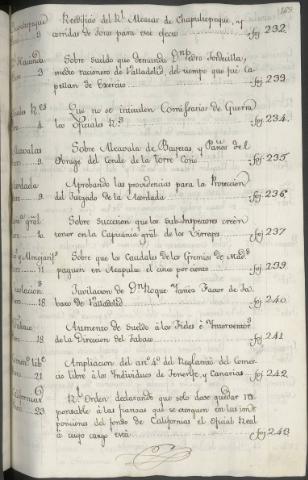 Reedificio del Rl. Alcazar de Chapultepeque, y
corridas de toros para este efecto fox. 232.
Sobre sueldo que demanda Dn. Pedro
medio racionero de Valladolid, del tiempo que fué Ca-
pellan de Exercito fox. 233.
9
Que no se intitulen Comisarios de Guerra
los Oficiales Rs. fox. 234.
4
Sobre Alcavala de Bayetas y Paños del
Obrage del Conde de la Torre Cosio fox. 235.
9.
Aprobando las providencias para la Proteccion
del Juzgado de la Acordada fox. 236.
9.
Sobre succesion que los sub-Inspectores creen
tener en la Capitania gral. de los Virreyes fox. 237
Sobre que los Caudales de los Gremios de Madd.
paguen en Acapulco el cinco por ciento fox. 239.
11
Jubilacion de Dn. Roque Yañes Factor de Ta-
baco de Valladolid fox. 240.
18
Aumento de sueldo á los Fieles é Interventors.
de la Direccion del Tabaco fox. 241.
18.
Ampliacion del arto. 4o. del Reglamto. del Comer-
cio libre á los Individuos de Tenerife, y Canarias fox. 242.
21
Rl. Orden declarando que solo deve quedar res-
ponsable á las fianzas que se otorguen en las im-
posiciones del fondo de Californias el Oficial Real
á cuyo cargo está fox. 243.
23.